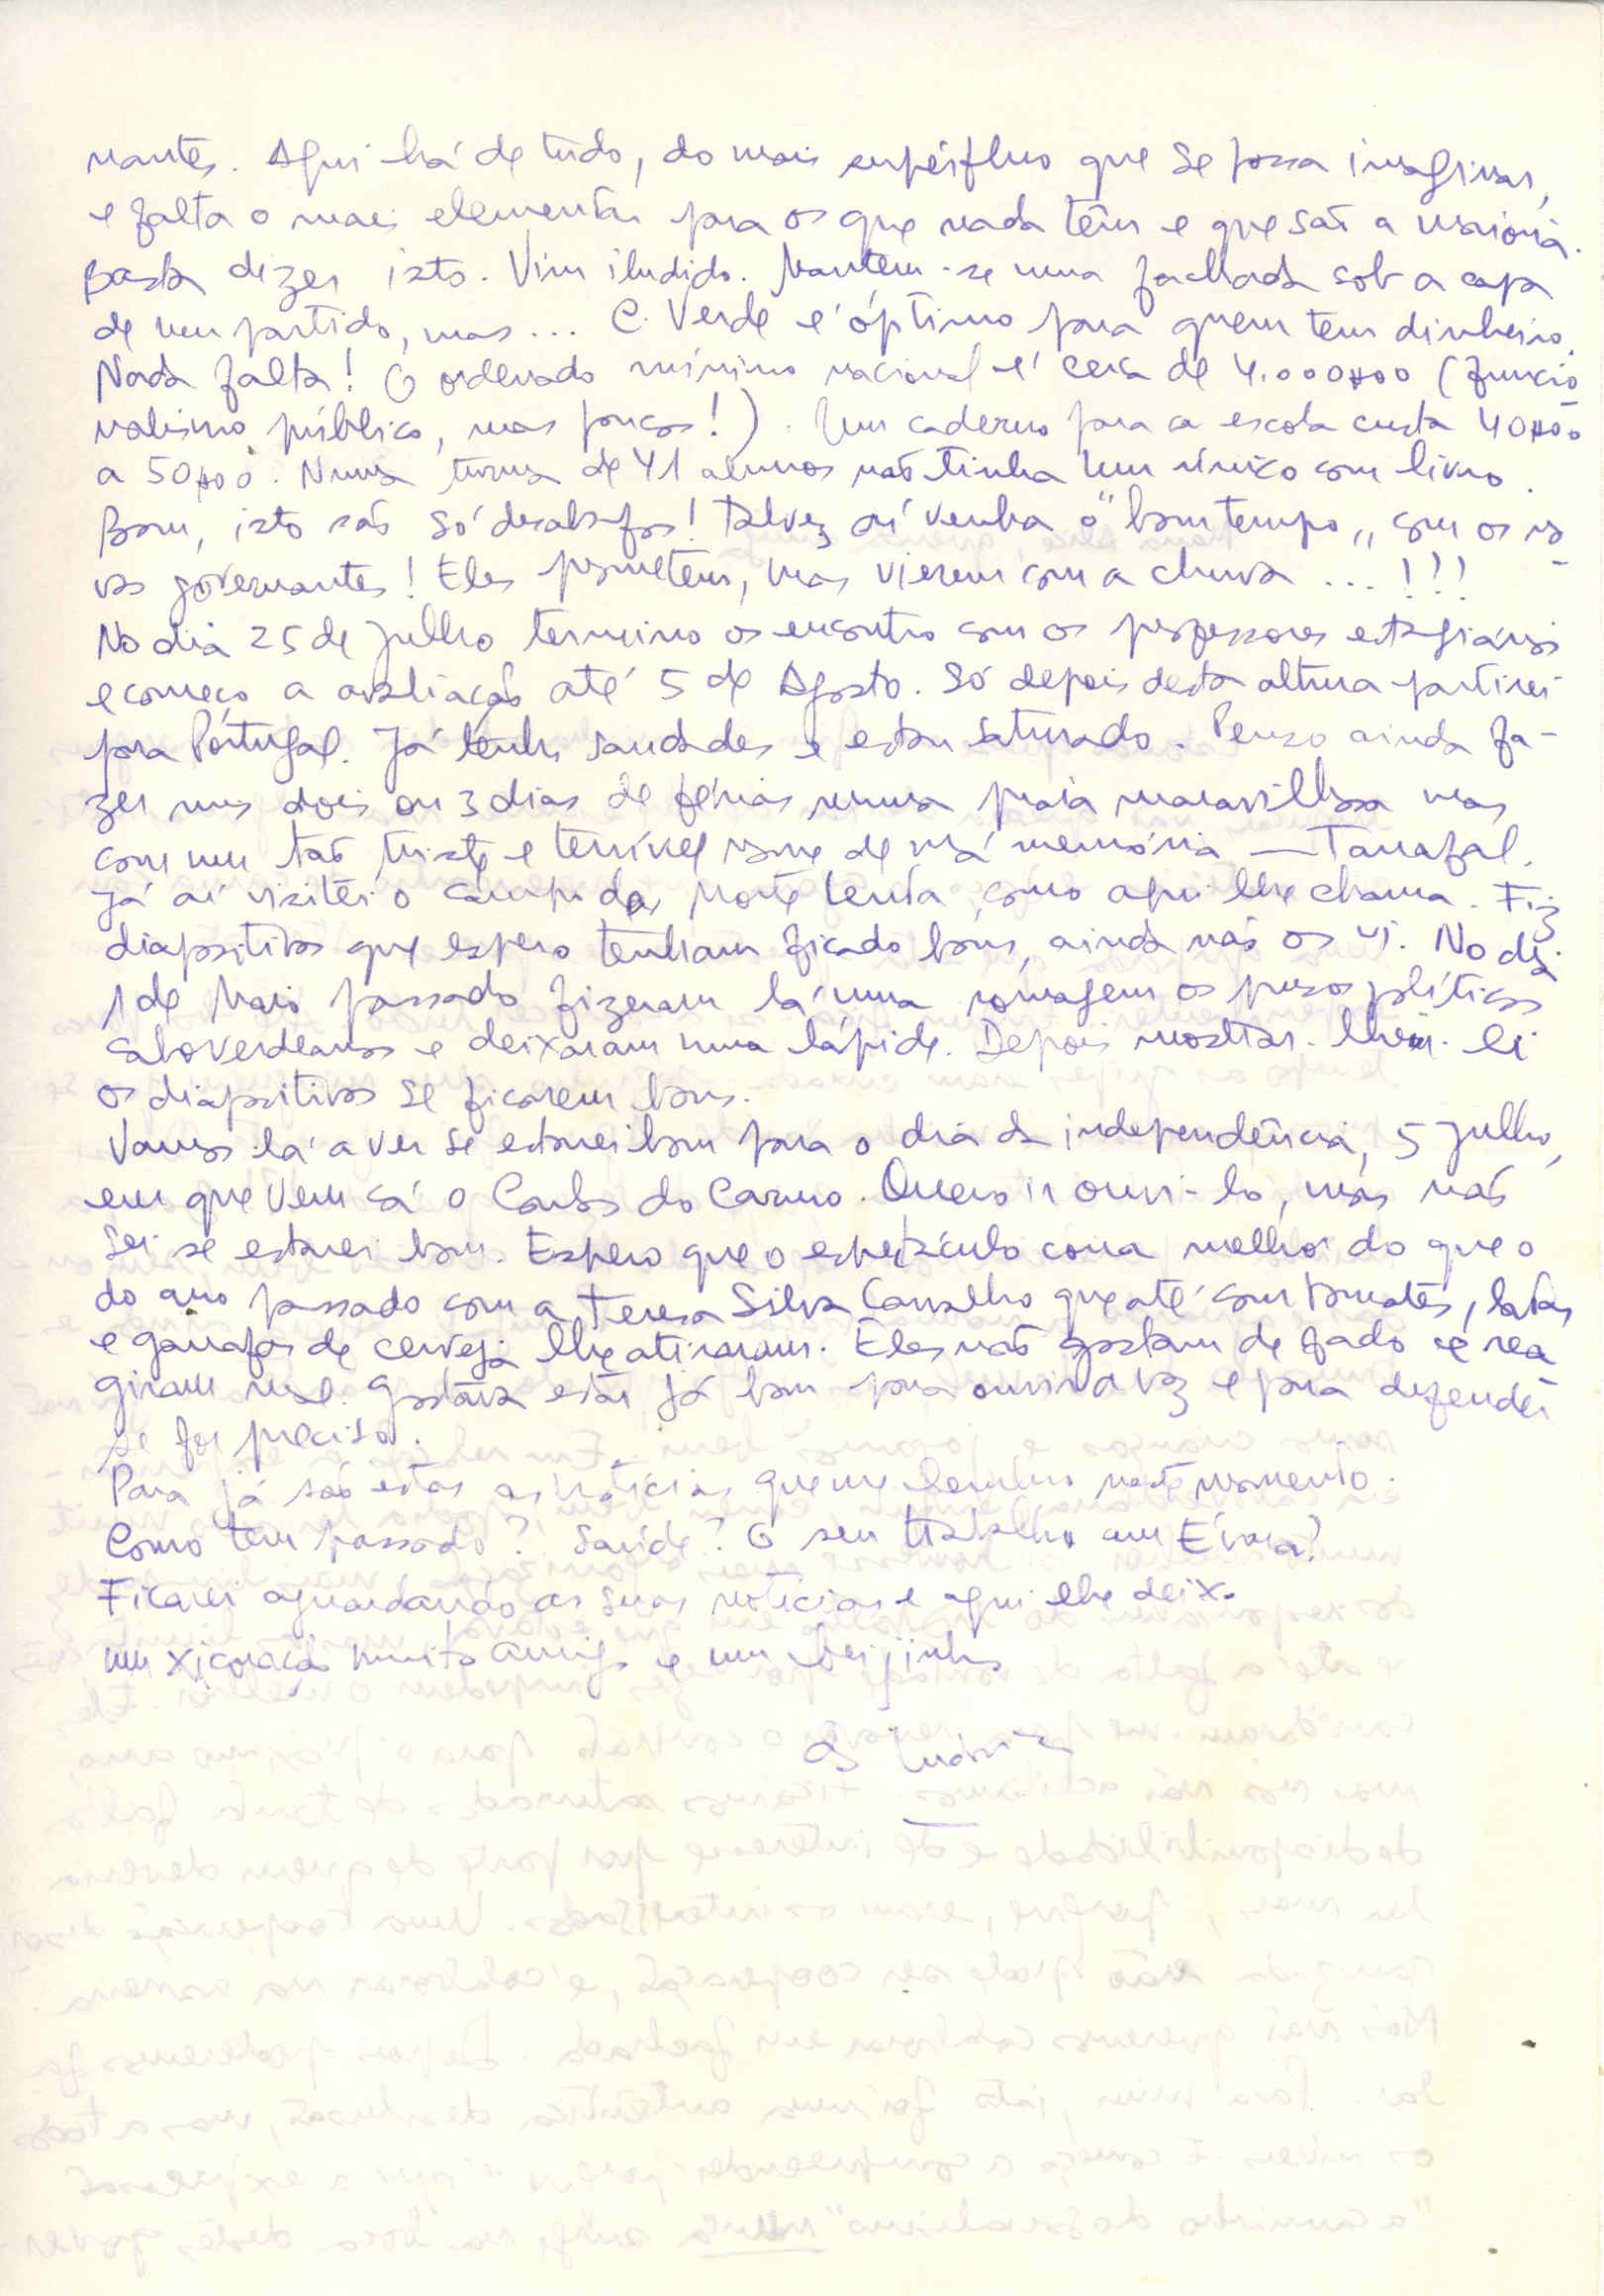 nantes. Aqui há de tudo, do mais supérfluo que se possa imaginar,
e falta o mais elementar para os que nada têm e que são a maioria.
Basta dizer isto. Vim iludido. Mantem-se uma fachada sob a capa
de um partido, mas... C. Verde é óptimo para quem tem dinheiro.
Nada falta! O ordenado mínimo nacional é cerca de 4.000$00 (funcio
nalismo público, mas poucos!). Um caderno para a escola custa 40$00
a 50$00. Numa turma de 41 alunos não tinha um único com livro.
Bom, isto são só desabafos! Talvez aí venha o "bom tempo" com os no
vos governantes! Eles prometem, mas vierem com a chuva ...!!!
No dia 25 de Julho termino os encontro com os professores estagiários
e começo a avaliação até 5 de Agosto. Só depois desta altura partirei
para Portugal. Já tenho saudades e estou saturado. Penso ainda fa-
zer uns dois ou 3 dias de férias numa praia maravilhosa mas
com um tão triste e terrível nome de má memória — Tarrafal.
Já aí visitei o campo da Morte Lenta, como aqui lhe chama. Fiz
diapositivos que espero tenham ficado bons, ainda não os vi. No dia
1 de Maio passado fizeram lá uma romagem os presos políticos
caboverdeanos e deixaram uma lápide. Depois mostrar-lhe-ei
os diapositivos se ficarem bons.
Vamos lá a ver se estarei bom para o dia da independência, 5 Julho,
em que vem cá o Carlos do Carmo. Quero ir ouvi-lo, mas não
sei se estarei bom. Espero que o espectáculo corra melhor do que o
do ano passado com a Teresa Silva Carvalho que até com tomates, latas
e garrafas de cerveja lhe atiraram. Eles não gostam de fado e rea
giram mal. Gostava estar já bom para ouvir a voz e para defender
se for preciso.
Para já são estas as notícias que me lembro neste momento.
Como tem passado? Saúde? O seu trabalho em Évora?
Ficarei aguardando as suas notícias e aqui lhe deixo
um xicoração muito amigo e um beijinho